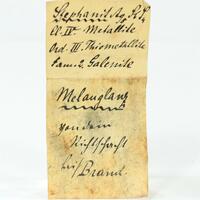 Stephanit Ag
Cl. IV. Metallite
Ord. III. Thiometallite
Fam. 2. Galenite
Melanglanz
von dem
Richtschacht
bei Brand.